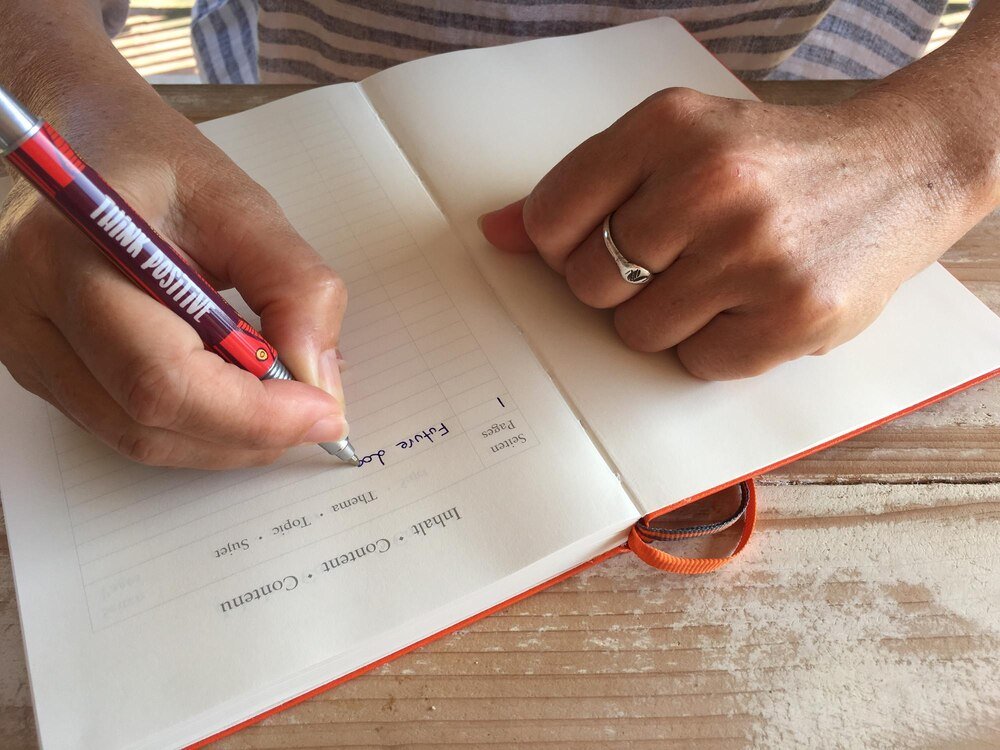 THINK POSITIVE
Inhalt • Content • Contenu
Seiten
Pages
Thema • Topic • Sujet
1
Future Log